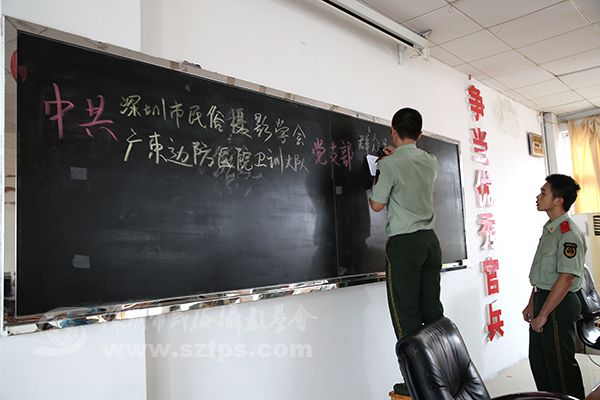 中共
深圳市民俗摄影学会
广東边防医院卫训大队
党支部
争当优秀官兵
深圳市民俗攝影學會
www.szfps.com